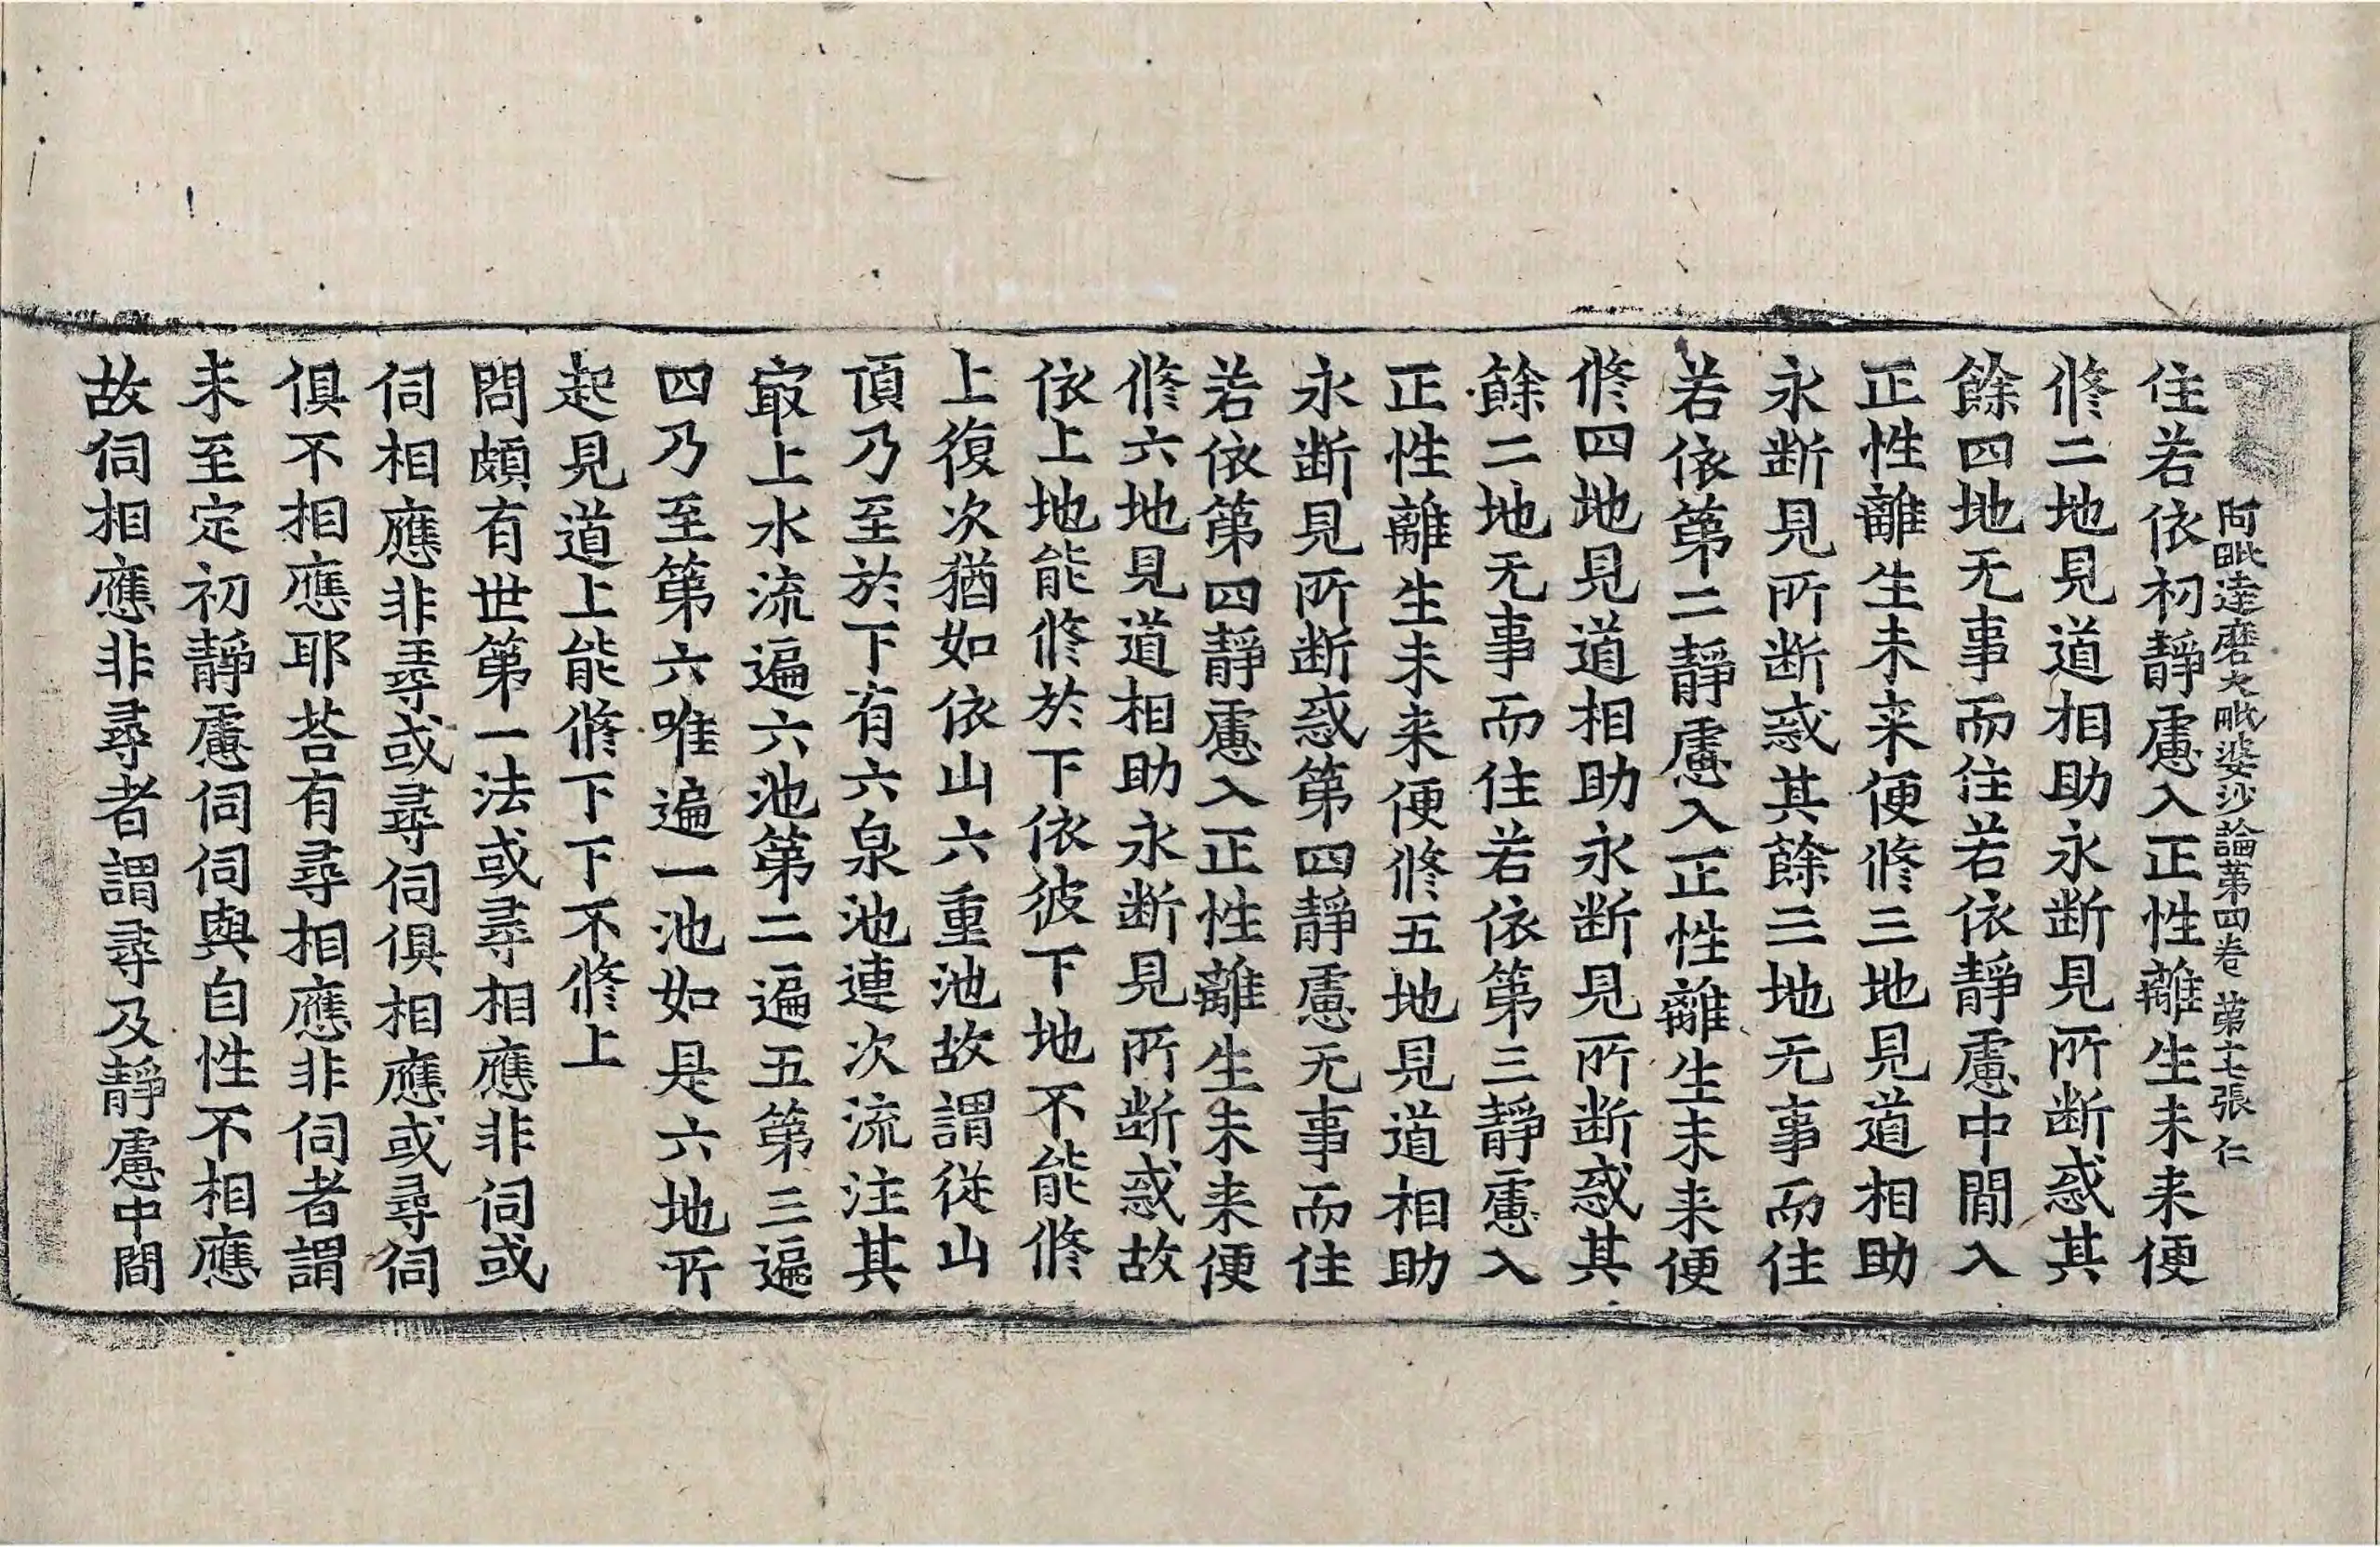 阿毗達磨大毗婆沙論第四卷 第十七張 仁
住若依初靜慮入正性離生未来便
修二地見道相助永断見所断惑其
餘四地无事而住若依靜慮中間入
正性離生未来便修三地見道相助
永断見所断惑其餘三地无事而住
若依第二靜慮入正性離生未来便
修四地見道相助永断見所断惑其
餘二地无事而住若依第三靜慮入
正性離生未来便修五地見道相助
永断見所断惑第四靜慮无事而住
若依第四靜慮入正性離生未来便
修六地見道相助永断見所断惑故
依上地能修於下依彼下地不能修
上復次猶如依山六重池故謂從山
頂乃至於下有六泉池連次流注其
㝡上水流遍六池第二遍五第三遍
四乃至第六唯遍一池如是六地所
起見道上能修下下不修上
問頗有世第一法或尋相應非伺或
伺相應非尋或尋伺俱相應或尋伺
俱不相應耶荅有尋相應非伺者謂
未至定初靜慮伺伺與自性不相應
故伺相應非尋者謂尋及靜慮中間